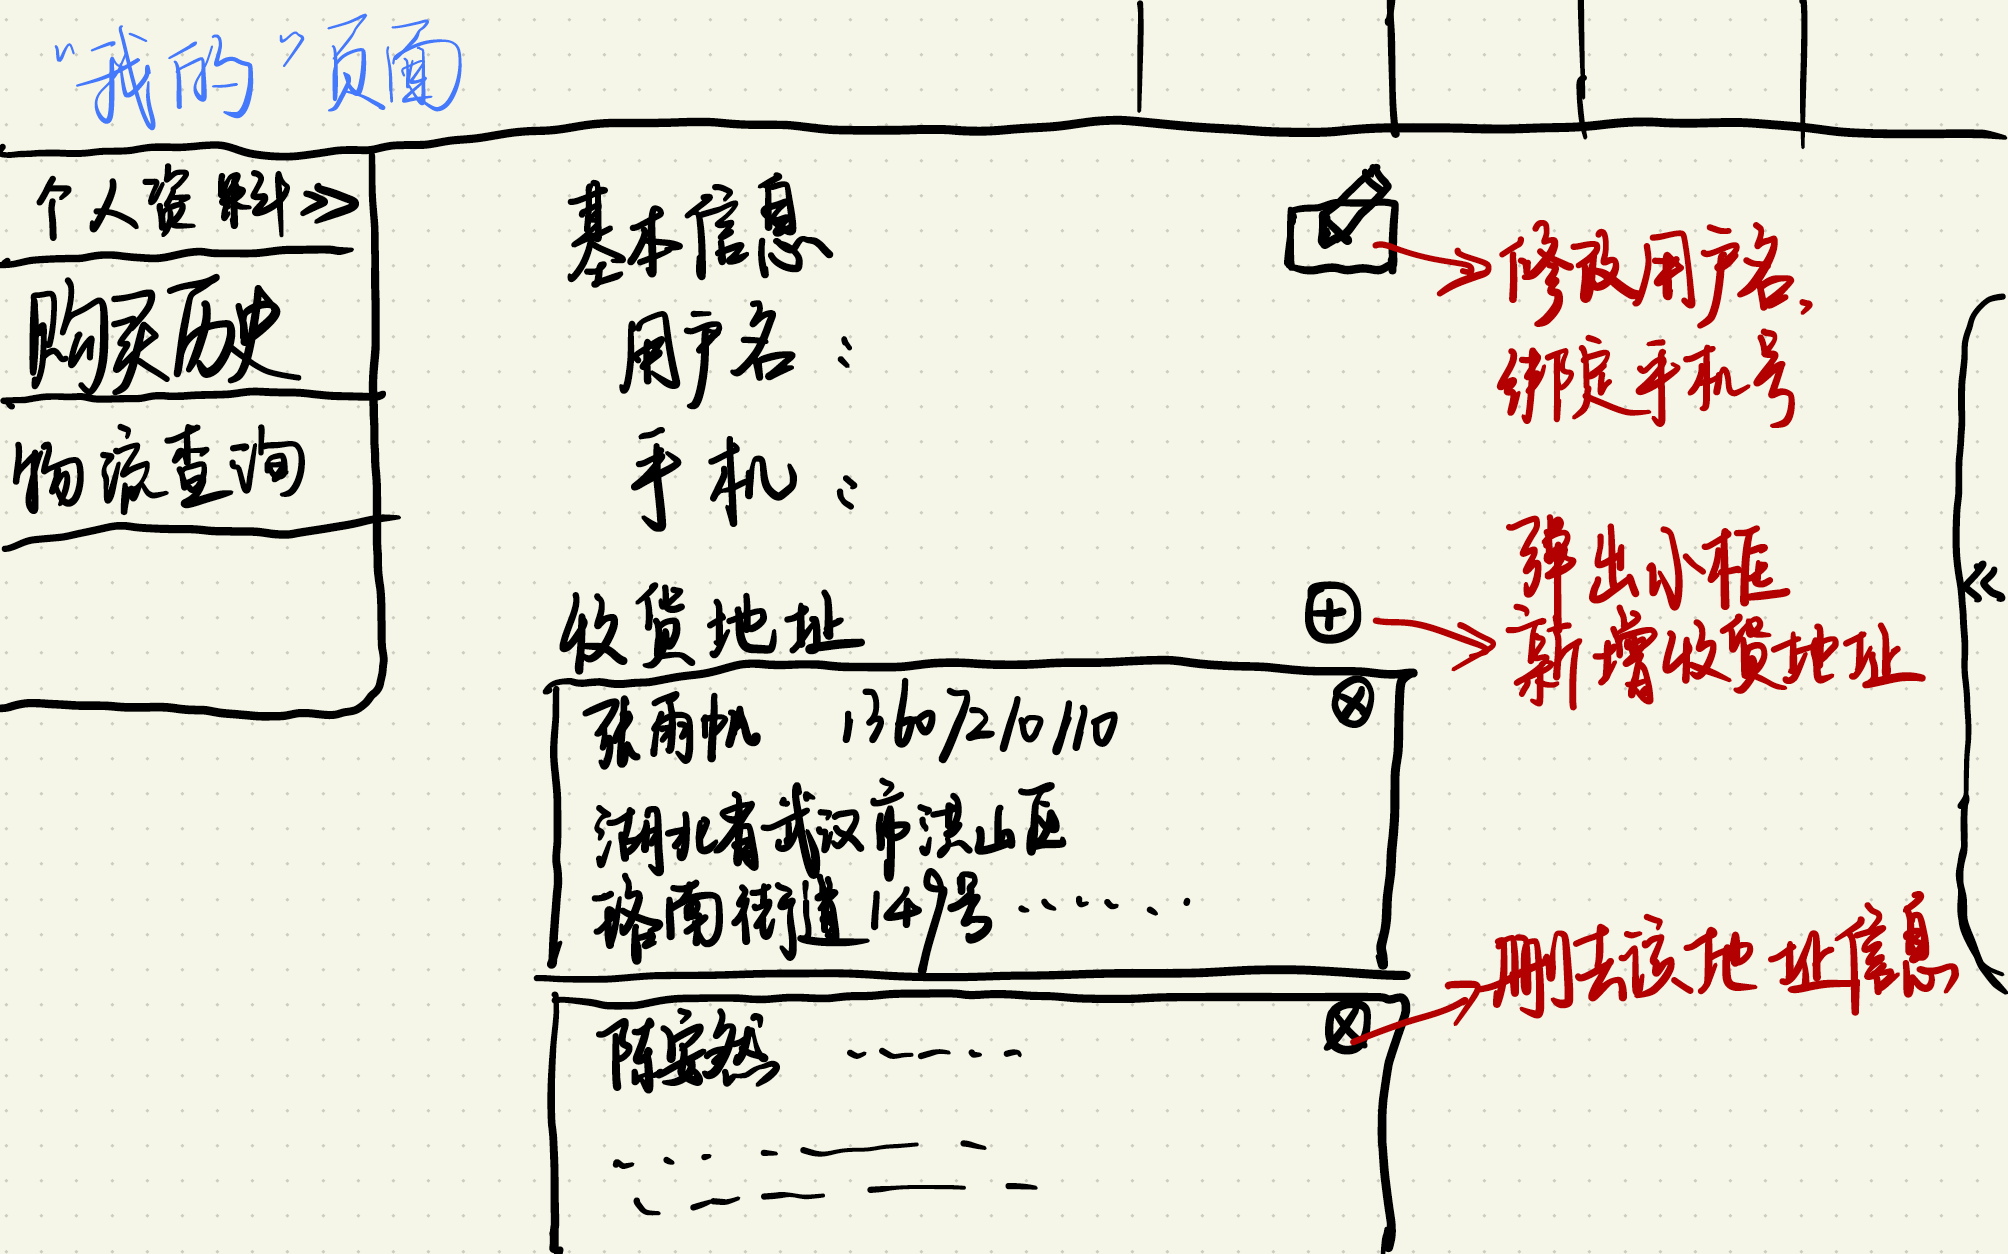 “我的”页面
个人资料>>
购买历史
物流查询
基本信息
用户名：
手机：
修改用户名，
绑定手机号
收货地址
弹出小框
新增收货地址
张雨帆 13607210110
湖北省武汉市洪山区
珞南街道149号……
陈安然
删去该地址信息
<<